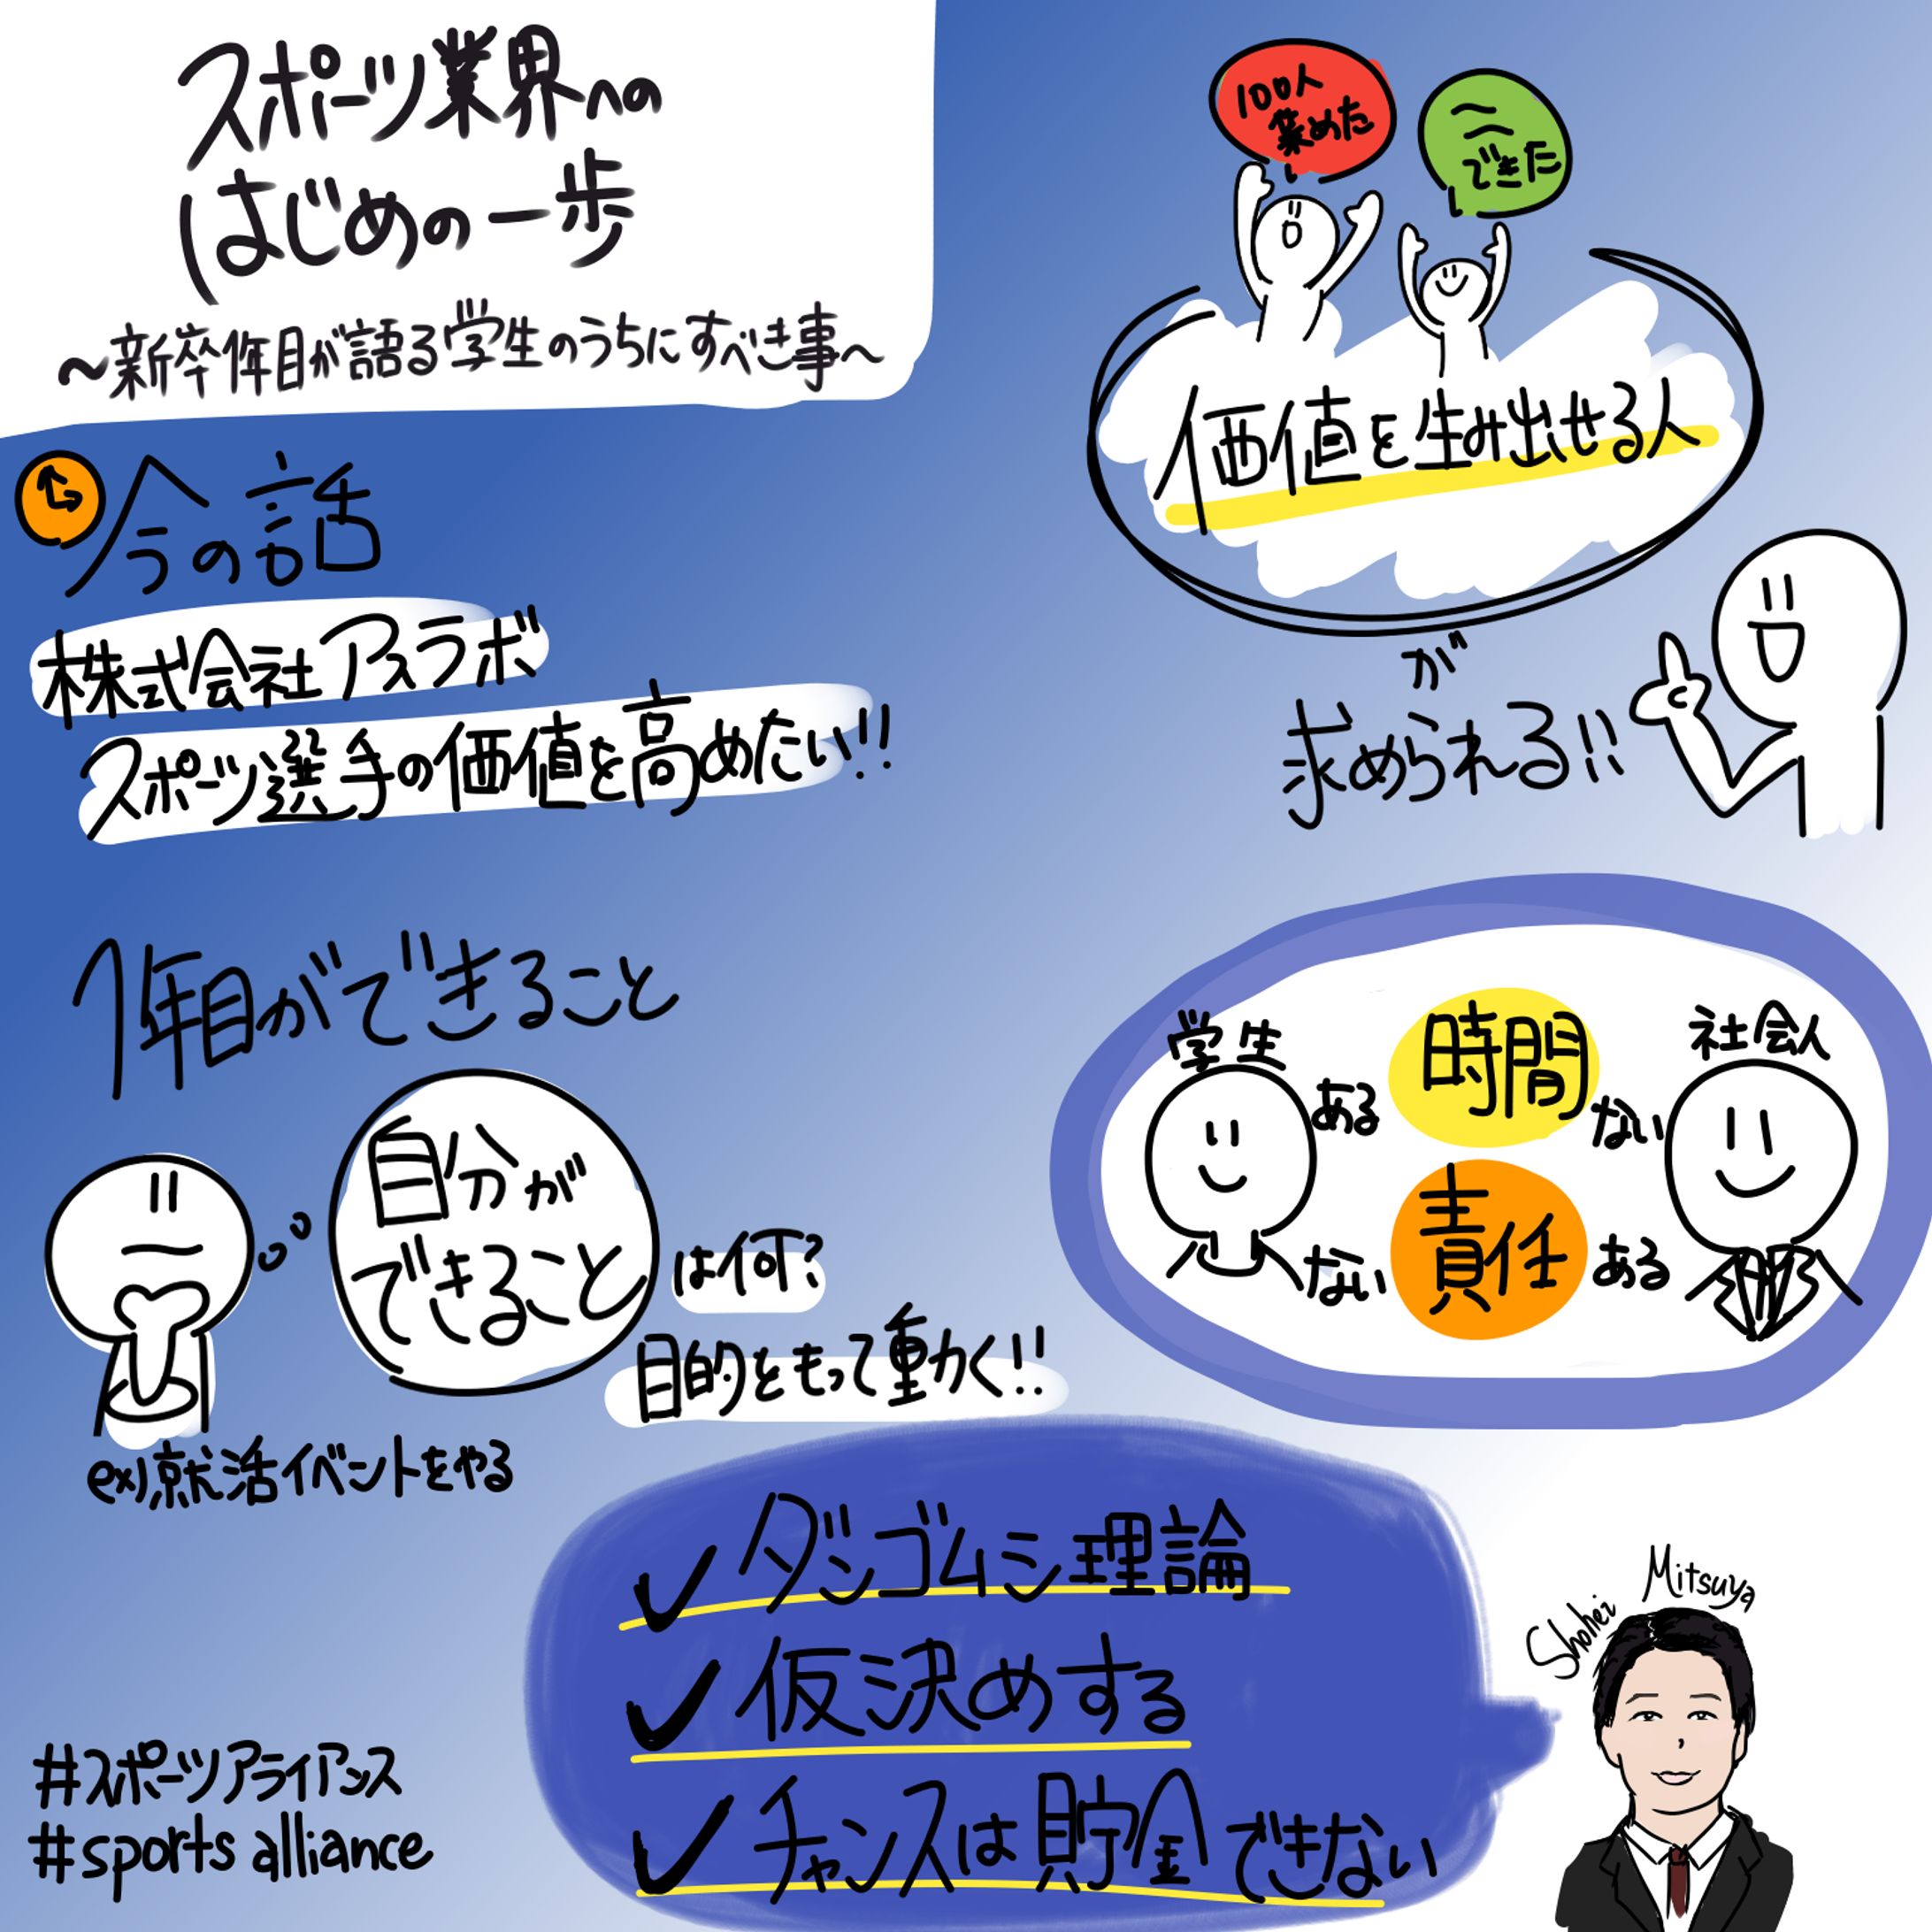 スポーツ業界への
はじめの一歩
〜新卒1年目が語る学生のうちにすべき事〜
今の話
株式会社アスラボ
スポーツ選手の価値を高めたい!!
1年目ができること
自分が
できること
は何?
目的をもって動く!!
ex)就活イベントをやる
100人
集めた
〜
〜
できた
価値を生み出せる人
が
求められる!!
学生
時間
社会人
ある
ない
責任
ない
ある
✓ダンゴムシ理論
✓仮決めする
✓チャンスは貯金できない
Shohei Mitsuya
#スポーツアライアンス
#sports alliance